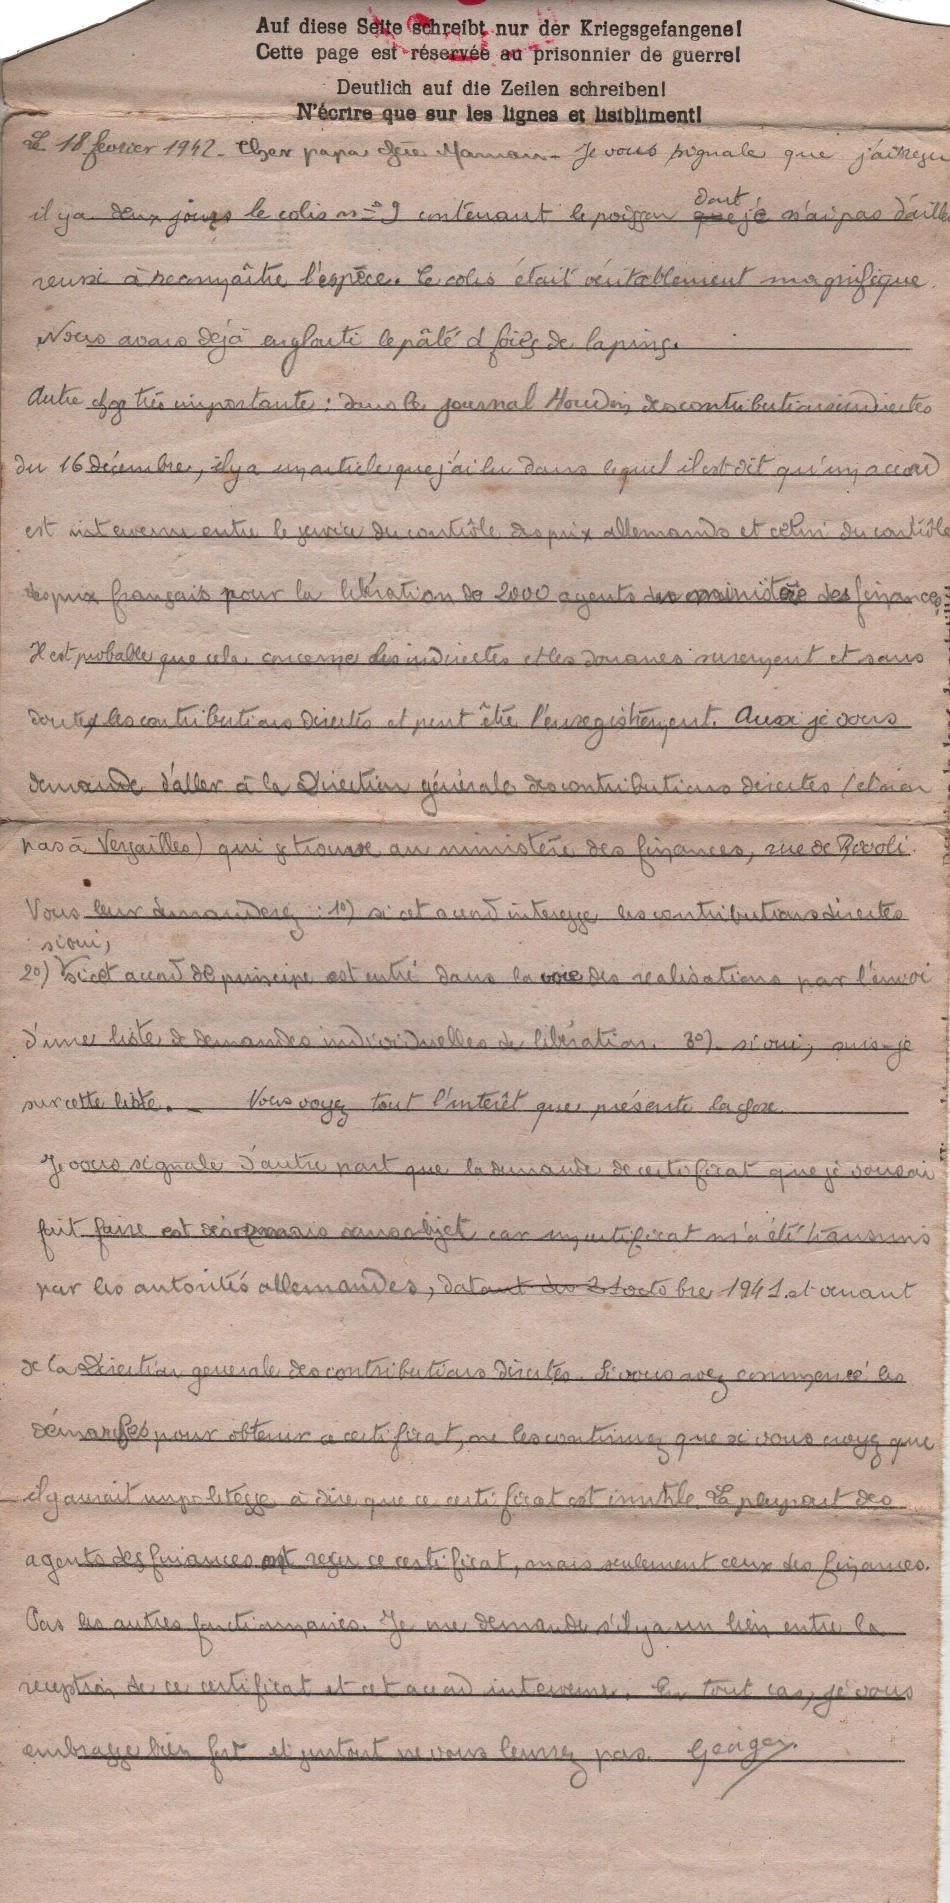 Auf diese Seite schreibt nur der Kriegsgefangene!
Cette page est réservée au prisonnier de guerre!
Deutlich auf die Zeilen schreiben!
N'écrire que sur les lignes et lisibliment!
Le 18 février 1942 - Cher papa chère Maman - Je vous signale que j'ai reçu
il y a deux jours le colis n=º 9 contenant le poisson que dont je n'ai pas d'aille
reussi à reconnaître l'espèce. Le colis était véritablement magnifique.
Nous avons déjà englouti le pâté d foies de lapins.
Autre chose très importante : dans le journal des contributions indirectes
du 16 décembre, il y a un article que j'ai lu dans lequel il est dit qu'un accord
est intervenu entre le service du contrôle des prix allemands et celui du contrôle
des prix français pour la libération de 2000 agents du ministère des finances.
Il est probable que cela concerne les indirectes et les douanes surement et sans
doute les contributions directes et peut être l'enregistrement. Aussi je vous
demande d'aller à la Direction générale des contributions directes (et non
pas à Versailles) qui se trouve au ministère des finances, rue de Rivoli.
Vous leur demanderez : 1º) si cet accord interesse les contributions directes
si oui,
2º) Si cet accord de principe est entré dans la voie des realisations par l'envoi
d'une liste de demandes individuelles de libération. 3º) si oui, suis-je
sur cette liste. - Vous voyez tout l'intérêt que présente la chose.
Je vous signale d'autre part que la demande de certificat que je vous ai
fait faire est désormais sans objet car un certificat m'a été transmis
par les autorités allemandes, datant du 21 octobre 1941 et venant
de la Direction generale des contributions directes. Si vous avez commencé les
démarches pour obtenir ce certificat, ne les continuez que si vous croyez que
il y aurait impolitesse à dire que ce certificat est inutile. La plupart des
agents des finances ont reçu ce certificat, mais seulement ceux des finances.
Pas les autres fonctionnaires. Je me demande s'il y a un lien entre la
réception de ce certificat et cet accord intervenu. En tout cas, je vous
embrasse bien fort et surtout ne vous leurrez pas. Georges